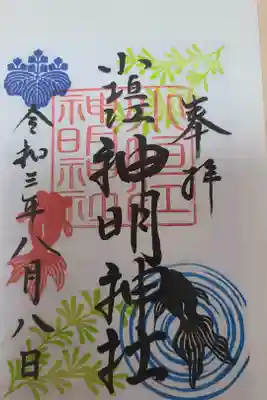 奉拝
小垣江神明神社
令和三年八月八日